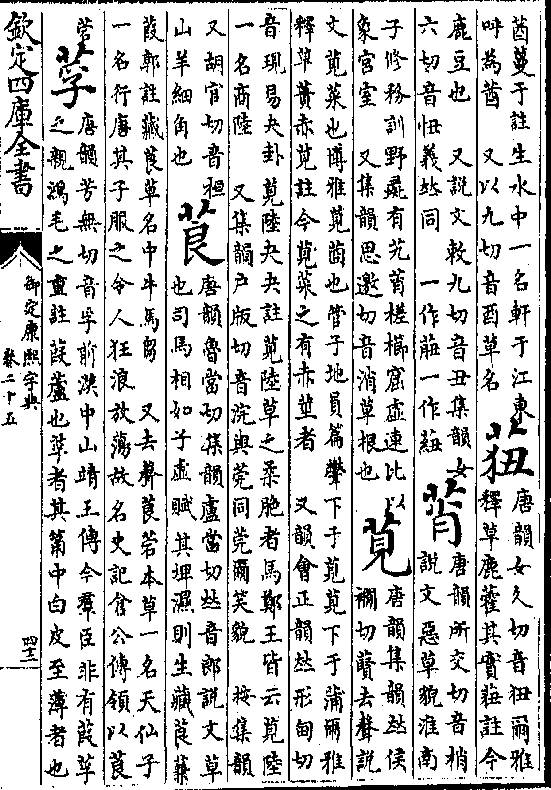 莤蔓于註生水中一名軒于江東
呼為莤 又以九切音酉草名
莥
唐韻女久切音狃爾雅
釋草鹿藿其實莥註今
鹿豆也 又說文敕九切音丑集韻女
六切音忸義𠀤同 一作莊一作䓔
莦
唐韻所交切音梢
說文惡草貌淮南
子修務訓野彘有艽莦槎櫛窟虛連比以
象宮室 又集韻思邀切音消草根也
莧
唐韻集韻𠀤侯
襉切贒去聲說
文莧菜也博雅莧也管子地員篇下于莧莧下于蒲爾雅
釋草蕢赤莧註今莧菜之有赤莖者 又韻會正韻𠀤形甸切
音現易夬卦莧陸夬夬註莧陸草之柔脆者馬鄭王皆云莧陸
一名商陸 又集韻戶版切音浣與莞同莞爾笑貌 按集韻
又胡官切音桓
山羊細角也
莨
唐韻魯當切集韻盧當切𠀤音郎說文草
也司馬相如子虛賦其埤濕則生藏莨蒹
葭郭註藏莨草名中牛馬芻 又去聲莨菪本草一名天仙子
一名行唐其子服之令人狂浪放蕩故名史記倉公傳飲以莨
菪
莩
唐韻芳無切音孚前漢中山靖王傳今羣臣非有葭莩
之親鴻毛之重註葭蘆也莩者其筩中白皮至薄者也
欽定四庫全書
御定康熙字典
卷二十五
四十二